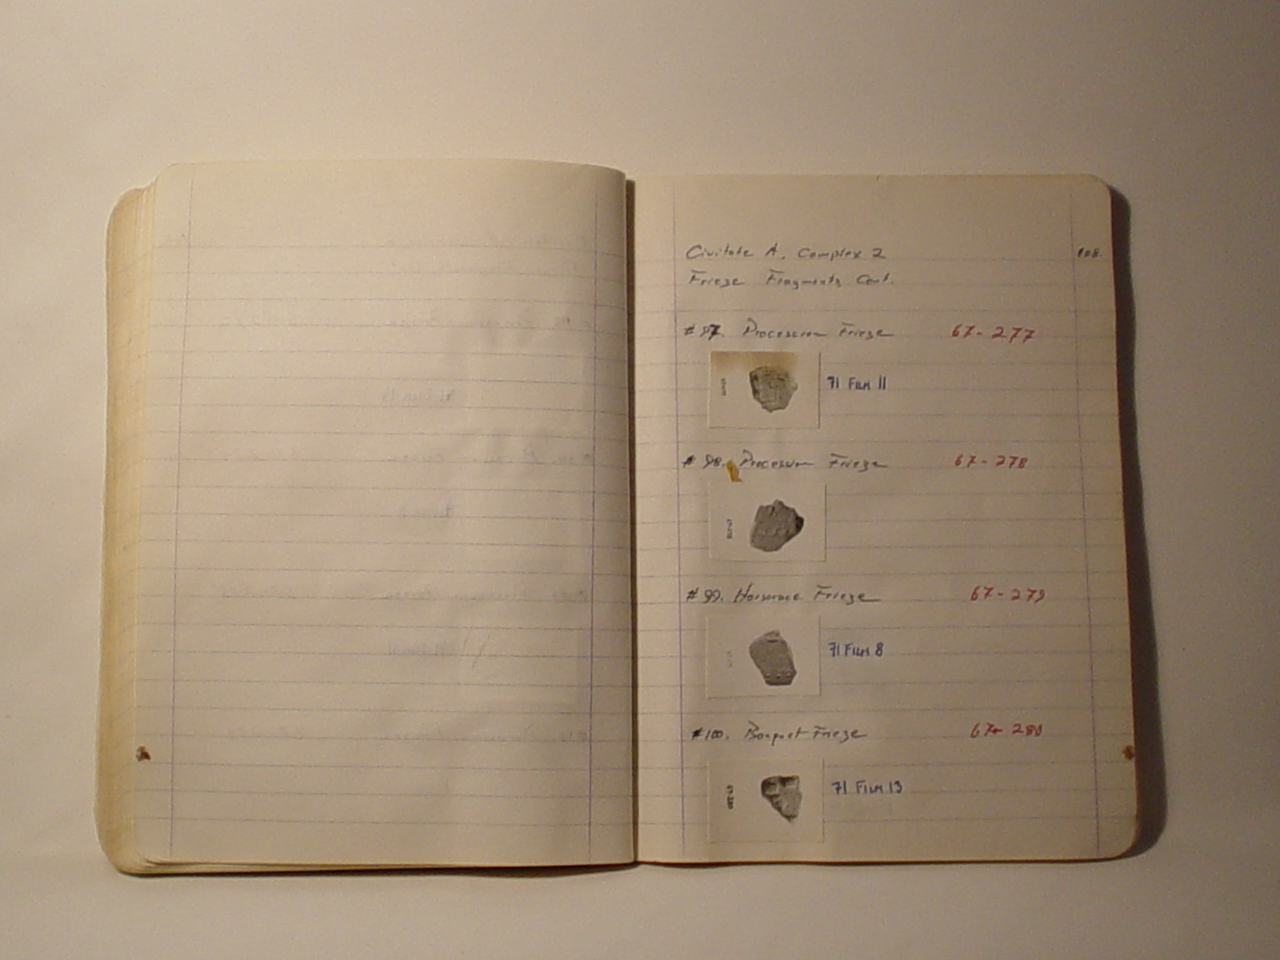 Civitate A. Complex 2
108.
Frieze Fragments Cont.
#97. Procession Frieze 67-277
71 FILM 11
#98. Procession Frieze 67-278
#99. Horserace Frieze 67-279
71 FILM 8
#100. Banquet Frieze 67-280
67-280
71 FILM 13